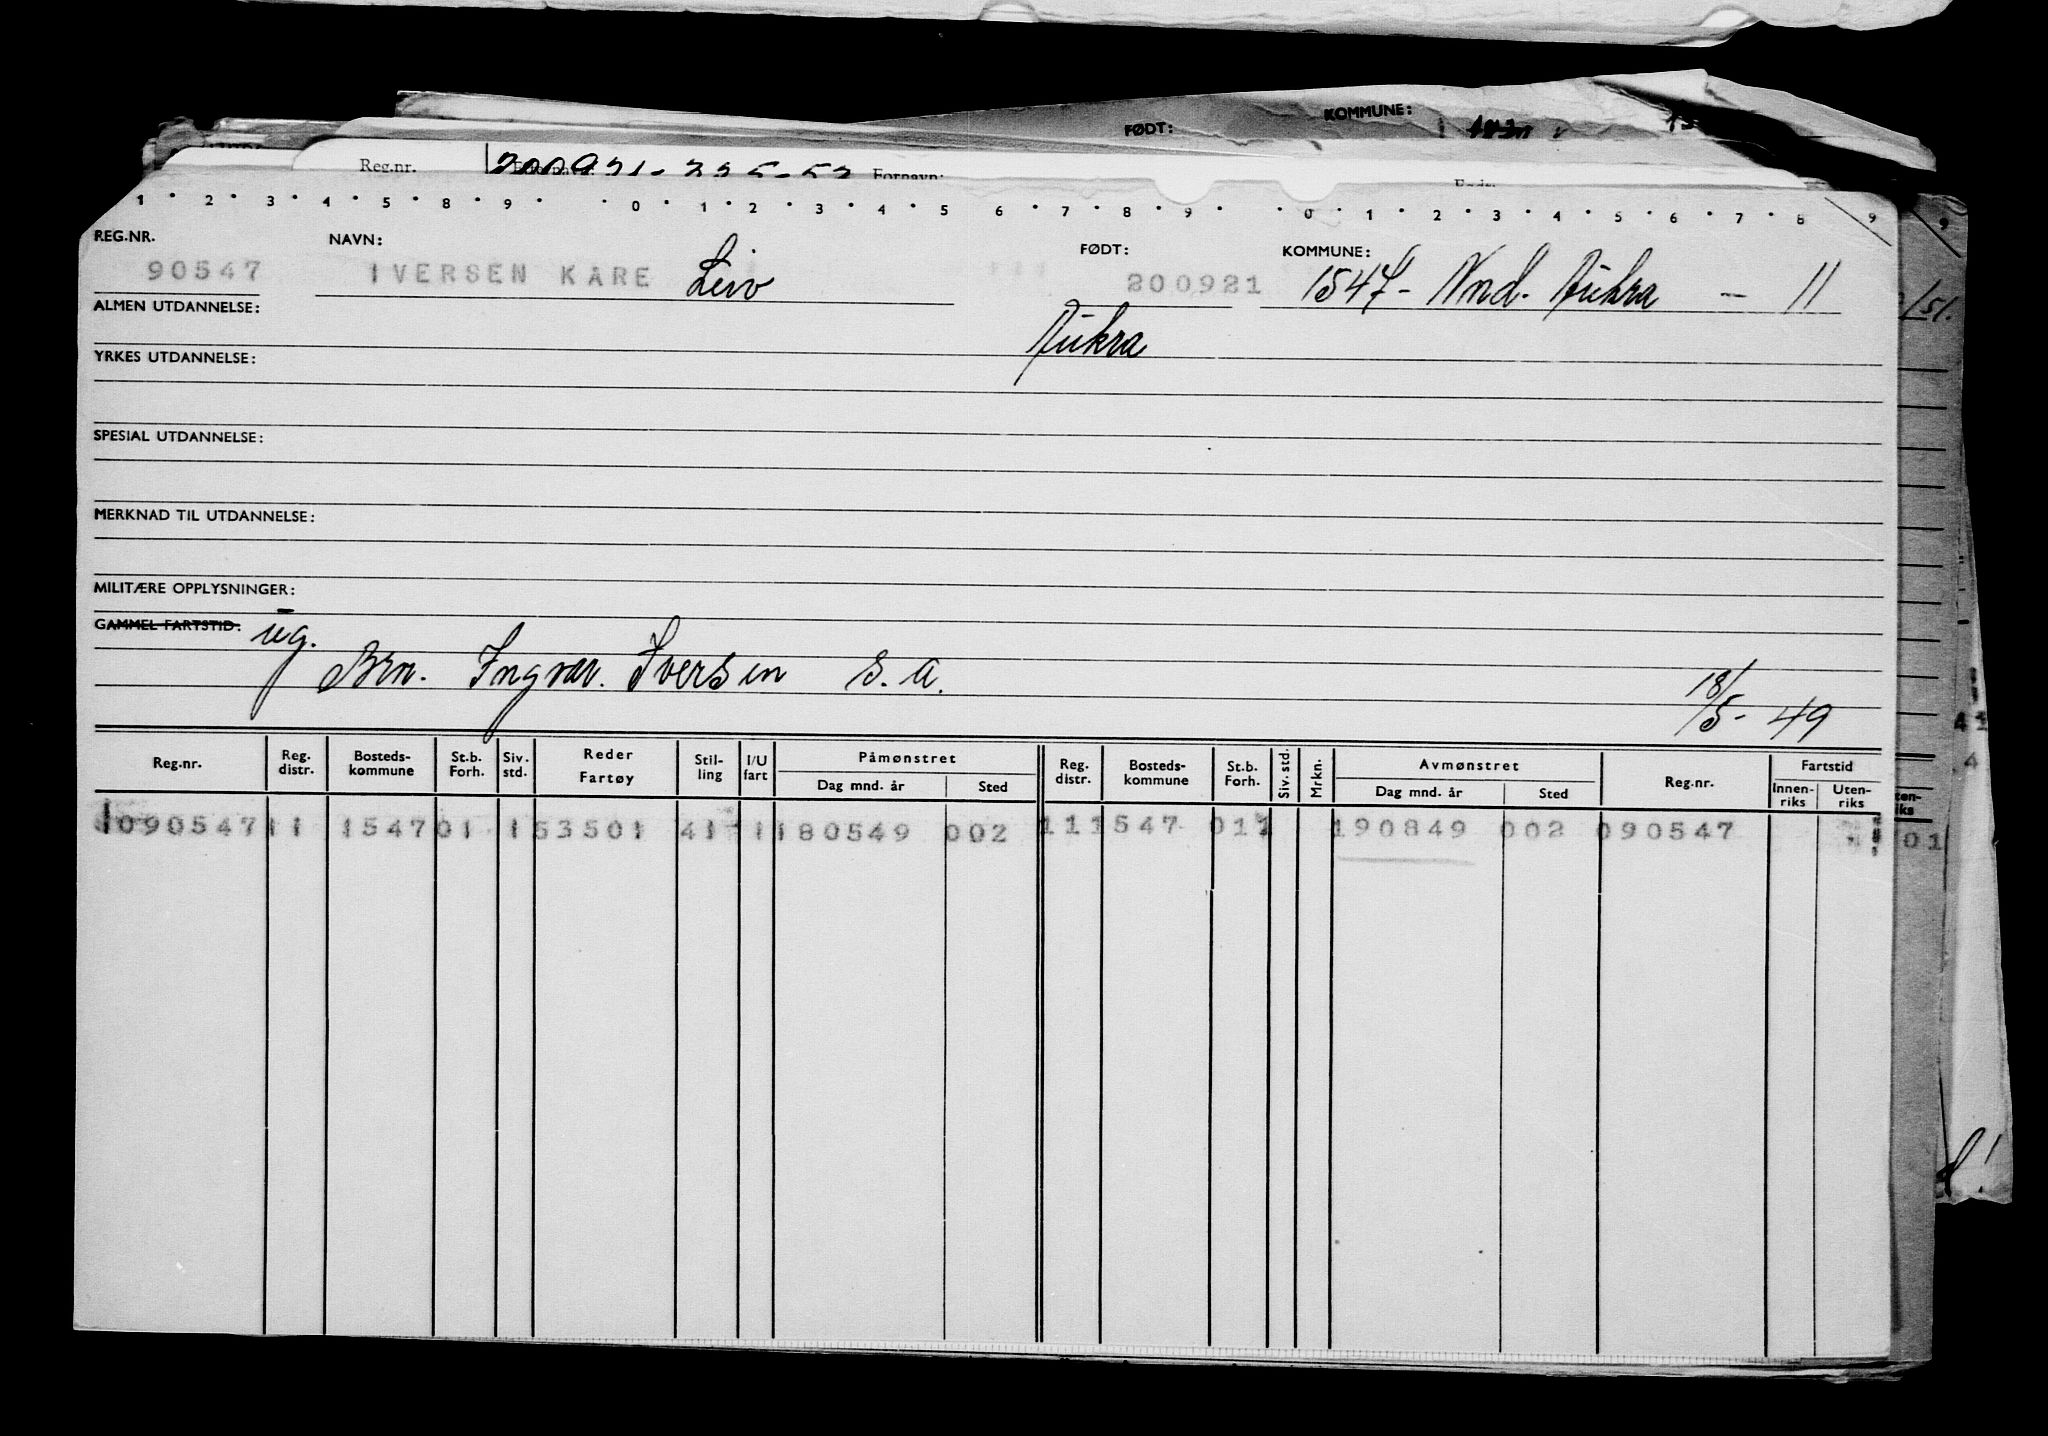 FØDT: KOMMUNE:
Reg.nr. 200921- Fornavn:
1 2 3 4 5 8 9 0 1 2 3 4 5 6 7 8 9 0 1 2 3 4 5 6 7 8 9
REG.NR. NAVN: FØDT: KOMMUNE:
90547 IVERSEN KARE Leiv 200921 1547- Nnd. Aukra - 11
ALMEN UTDANNELSE: Aukra
YRKES UTDANNELSE:
SPESIAL UTDANNELSE:
MERKNAD TIL UTDANNELSE:
MILITÆRE OPPLYSNINGER:
GAMMEL FARTSTID: ug.
Brn. Ingvar. Iversen s. a. 18/5- 49
Reg.nr. Reg. distr. Bosteds-kommune St.b. Forh. Siv. std. Reder Fartøy Stil-ling I/U fart Påmønstret Dag mnd. år Sted Reg. distr. Bosteds-kommune St.b. Forh. Siv. std. Mrkn. Avmønstret Dag mnd. år Sted Reg.nr. Fartstid Innen-riks Uten-riks
1090547 11 1547 01 1 53501 41 1 180549 002 11 1547 01 1 190849 002 090547 01